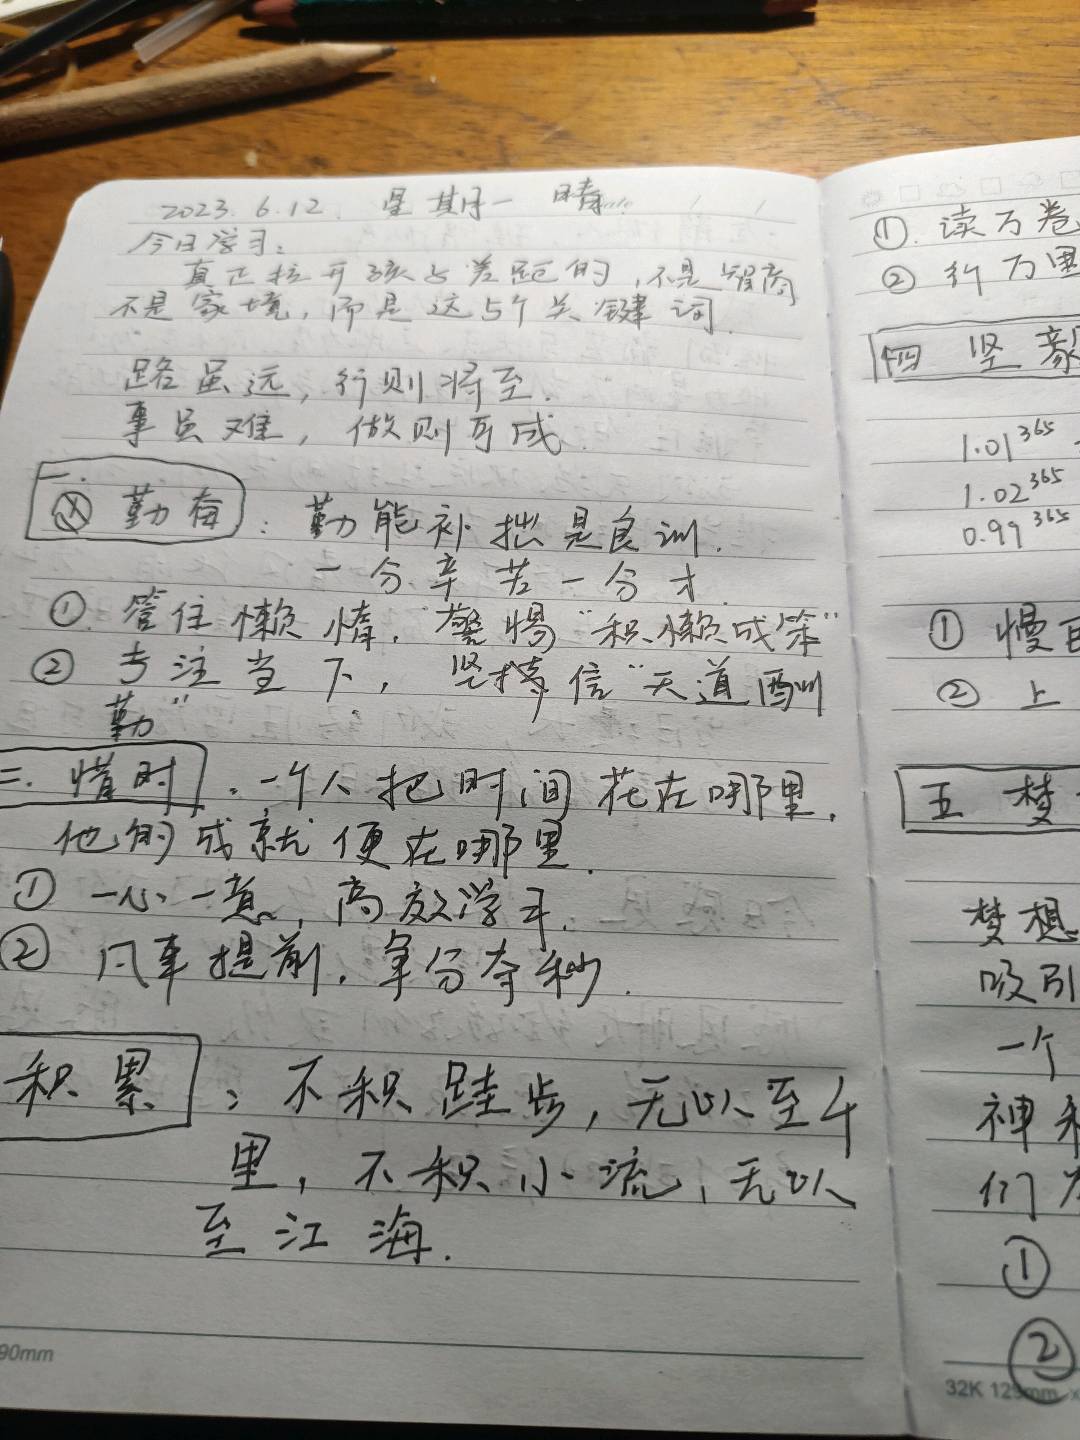 2023.6.12. 星期一 晴
今日学习：
真正拉开孩子差距的，不是智商
不是家境，而是这5个关键词.
路虽远，行则将至.
事虽难，做则可成.
一.
勤奋：勤能补拙是良训.
一分辛苦一分才.
① 管住懒惰，警惕“积懒成笨”
② 专注当下，坚持信“天道酬
勤”
二.惜时.一个人把时间花在哪里.
他的成就便在哪里.
① 一心一意，高效学习.
② 凡事提前，争分夺秒.
积累：不积跬步，无以至千
里，不积小流，无以
至江海.
90mm
①.读万卷
② 行万里
四 坚毅
1.01³⁶⁵
1.02³⁶⁵
0.99³⁶⁵
① 慢
② 上
五 梦
梦想
吸引
一个
神和
们为
①
②
32K 129mm x